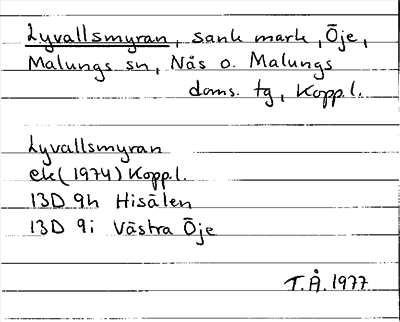 Lyvallsmyran, sank mark, Öje,
Malungs sn, Nås o. Malungs
doms. tg, Kopp.l.
Lyvallsmyran
ek (1974) Kopp.l.
13D 9h Hisälen
13D 9i Västra Öje
T.Å. 1977